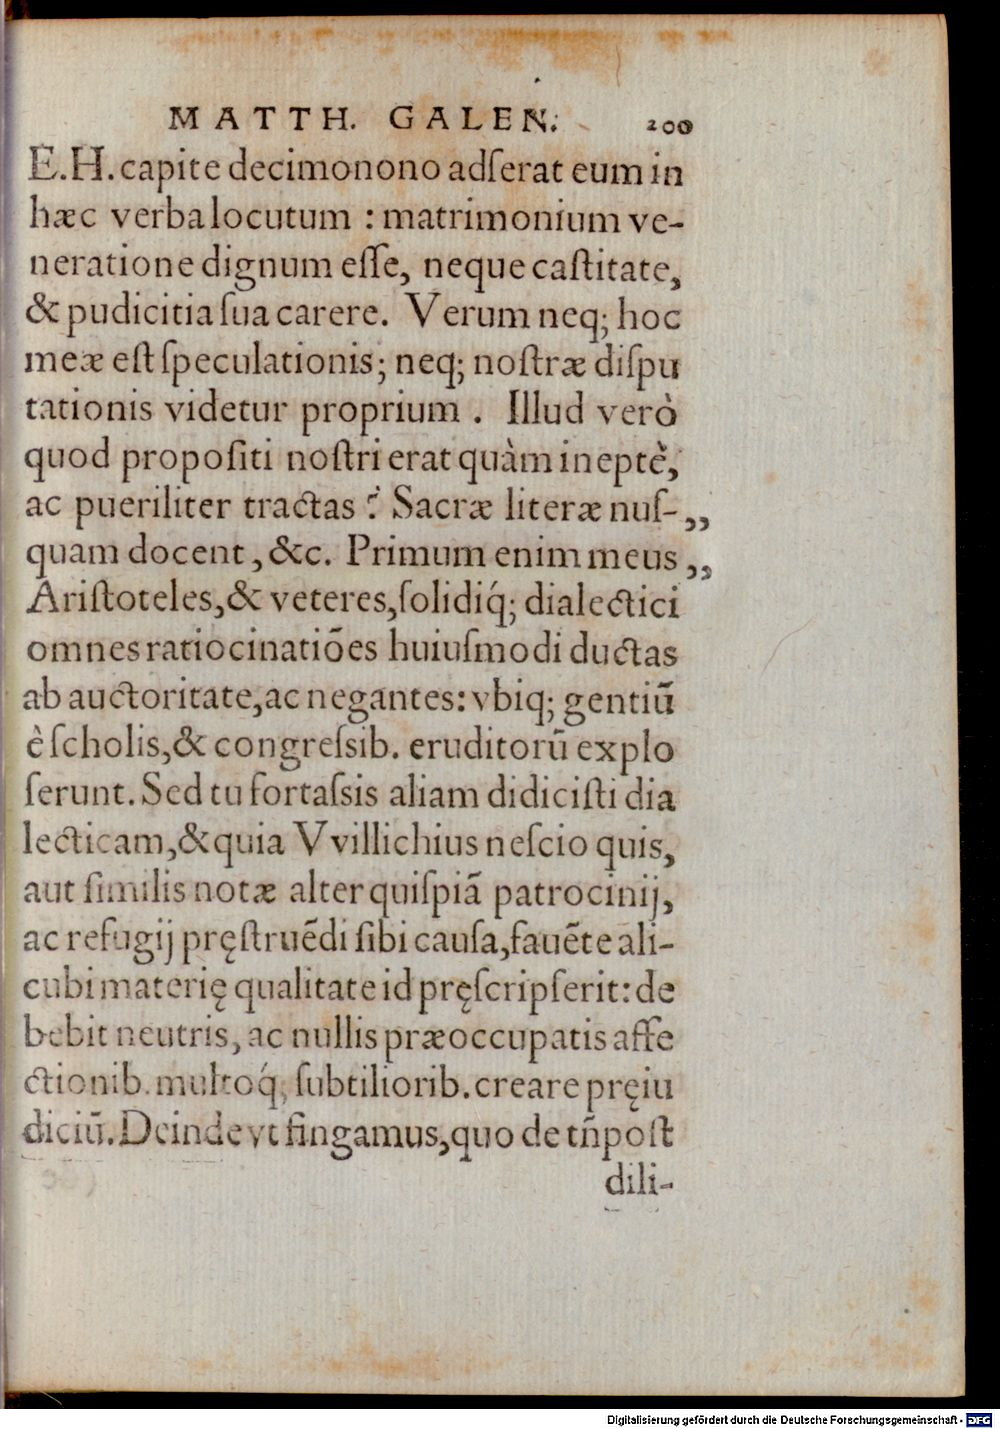 MATTH. GALEN. 200
E.H. capite decimonono adſerat eum in
hæc verba locutum : matrimonium ve-
neratione dignum eſſe, neque caſtitate,
& pudicitia ſua carere. Verum neq; hoc
meæ eſt ſpeculationis; neq; noſtræ diſpu
tationis videtur proprium . Illud verò
quod propoſiti noſtri erat quàm ineptè,
ac pueriliter tractas ? Sacræ literæ nuſ-,,
quam docent, &c. Primum enim meus ,,
Ariſtoteles, & veteres, ſolidiq́; dialectici
omnes ratiocinatiões huiuſmodi ductas
ab auctoritate, ac negantes: vbiq; gentiũ
è ſcholis, & congreſsib. eruditorũ explo
ſerunt. Sed tu fortaſsis aliam didiciſti dia
lecticam, & quia Vvillichius neſcio quis,
aut ſimilis notæ alter quiſpiã patrocinij,
ac refugij pręſtruẽdi ſibi cauſa, fauẽte ali-
cubi materię qualitate id pręſcripſerit: de
bebit neutris, ac nullis præoccupatis affe
ctionib. multoq́; ſubtiliorib. creare pręiu
diciũ. Deinde vt fingamus, quo de tñ poſt
dili-
Digitalisierung gefördert durch die Deutsche Forschungsgemeinschaft - DFG